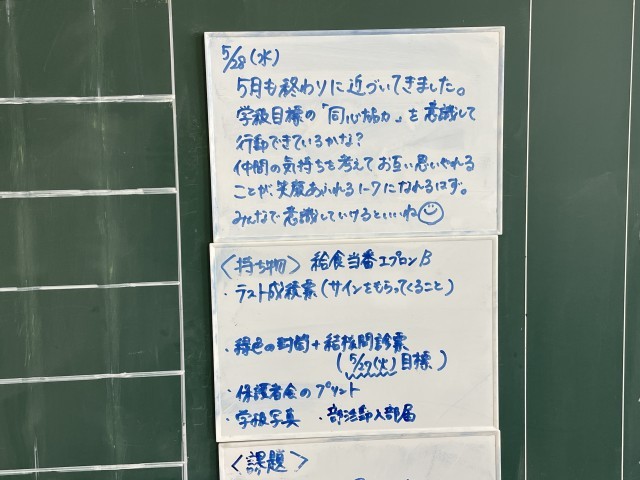 5/28(水)
5月も終わりに近づいてきました。
学級目標の「同心協力」を意識して
行動できているかな?
仲間の気持ちを考えてお互い思いやれる
ことが、笑顔あふれる1-7になれるはず。
みんなで意識していけるといいね
〈持ち物〉 給食当番エプロンB
・テスト成績票(サインをもらってくること)
・緑色の封筒+結核問診票
(5/27(火)目標)
・保護者会のプリント
・学級写真 ・部活動入部届
〈課題〉